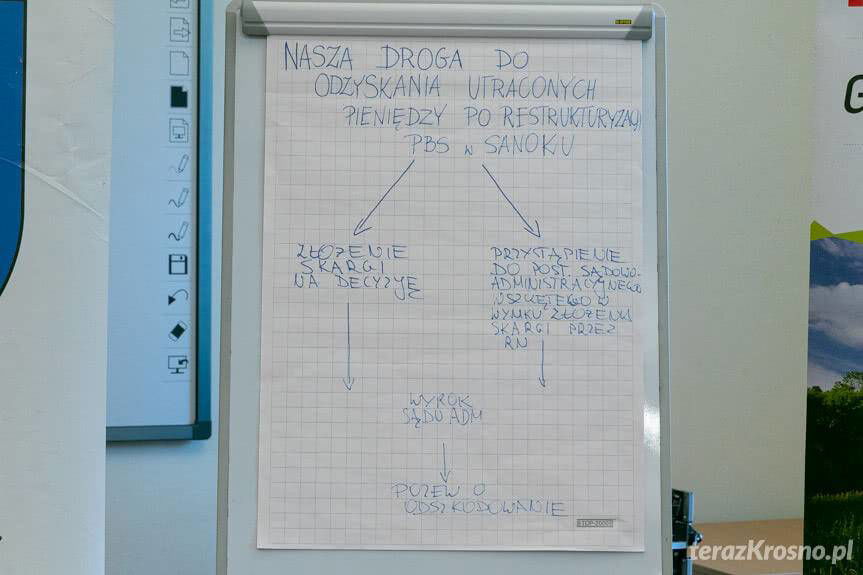 NASZA DROGA DO
ODZYSKANIA UTRACONYCH
PIENIĘDZY PO RESTRUKTURYZACJI
PBS w SANOKU
ZŁOŻENIE
SKARGI
NA DECYZJĘ
PRZYSTĄPIENIE
DO POST. SĄDOWO-
ADMINISTRACYJNEGO
WSZCZĘTEGO W
WYNIKU ZŁOŻENIA
SKARGI PRZEZ
RN
WYROK
SĄDU ADM
POZEW O
ODSZKODOWANIE
terazKrosno.pl